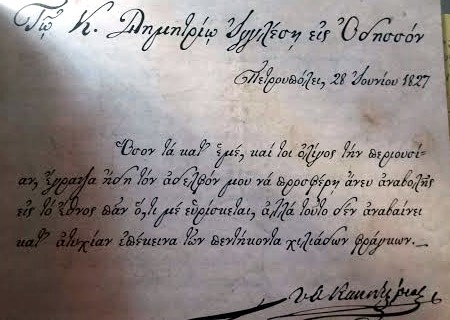 Τῷ Κ. Δημητρίῳ Ἰγγλέση εἰς Ὀδησσόν
Πετρουπόλει, 28 Ἰουνίου 1827
Ὅσον τὰ κατ' ἐμέ, καί τοι ὀλίγος τὴν περιουσί-
αν, ἔγραψα ἤδη τὸν ἀδελφόν μου νὰ προσφέρῃ ἄνευ ἀναβολῆς
εἰς τὸ ἔθνος πᾶν ὅ,τι μὲ εὑρίσκεται, ἀλλὰ τοῦτο δὲν ἀναβαίνει
κατ' ἀτυχίαν ἐπέκεινα τῶν πεντήκοντα χιλιάδων φράγκων._
Καποδίστριας